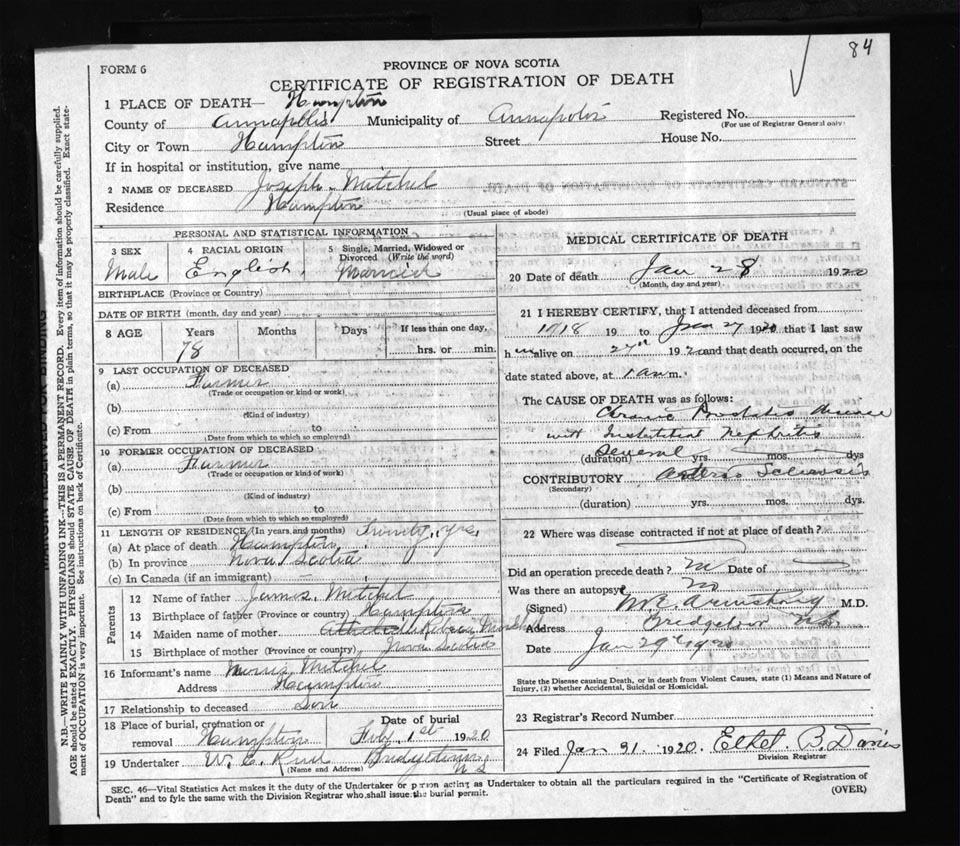 84
FORM 6
PROVINCE OF NOVA SCOTIA
CERTIFICATE OF REGISTRATION OF DEATH
1 PLACE OF DEATH— Hampton
County of Annapolis Municipality of Annapolis Registered No.
(For use of Registrar General only)
City or Town Hampton Street House No.
If in hospital or institution, give name
2 NAME OF DECEASED Joseph Mitchel
Residence Hampton
(Usual place of abode)
PERSONAL AND STATISTICAL INFORMATION
3 SEX 4 RACIAL ORIGIN 5 Single, Married, Widowed or Divorced (Write the word)
Male English. Married
BIRTHPLACE (Province or Country)
DATE OF BIRTH (month, day and year)
8 AGE Years Months Days If less than one day,
78 hrs. or min.
9 LAST OCCUPATION OF DECEASED
(a) Farmer
(Trade or occupation or kind or work)
(b)
(Kind of industry)
(c) From to
(Date from which to which so employed)
10 FORMER OCCUPATION OF DECEASED
(a) Farmer
(Trade or occupation or kind of work)
(b)
(Kind of industry)
(c) From to
(Date from which to which so employed)
11 LENGTH OF RESIDENCE (In years and months) yrs.
(a) At place of death Hampton
(b) In province Nova Scotia
(c) In Canada (if an immigrant) —
Parents
12 Name of father James Mitchel
13 Birthplace of father (Province or country) Hampton
14 Maiden name of mother Rebecca
15 Birthplace of mother (Province or country) Nova Scotia
16 Informant's name Mitchel
Address Hampton
17 Relationship to deceased Son
18 Place of burial, cremation or removal Hampton Date of burial Feb. 1st 1920
19 Undertaker W. C. Bridgetown N S
(Name and Address)
MEDICAL CERTIFICATE OF DEATH
20 Date of death Jan 28 1920
(Month, day and year)
21 I HEREBY CERTIFY, that I attended deceased from
1918 19 to Jan 27 1920 that I last saw
h im alive on 27th 1920 and that death occurred, on the
date stated above, at 1 am m.
The CAUSE OF DEATH was as follows:
Chronic
with Nephritis
(duration) Several yrs. mos. dys
CONTRIBUTORY
(Secondary)
(duration) yrs. mos. dys.
22 Where was disease contracted if not at place of death?
Did an operation precede death? no Date of
Was there an autopsy no
(Signed) Armstrong M.D.
Address Bridgetown NS
Date Jan 29th 1920
State the Disease causing Death, or in death from Violent Causes, state (1) Means and Nature of
Injury, (2) whether Accidental, Suicidal or Homicidal.
23 Registrar's Record Number
24 Filed Jan 31. 1920. Ethel. B. Davies
Division Registrar
SEC. 46—Vital Statistics Act makes it the duty of the Undertaker or person acting as Undertaker to obtain all the particulars required in the "Certificate of Registration of
Death" and to fyle the same with the Division Registrar who shall issue the burial permit.
(OVER)
N.B.—WRITE PLAINLY WITH UNFADING INK—THIS IS A PERMANENT RECORD. Every item of information should be carefully supplied.
AGE should be stated EXACTLY. PHYSICIANS should STATE CAUSE OF DEATH in plain terms, so that it may be properly classified. Exact state-
ment of OCCUPATION is very important. See instructions on back of Certificate.